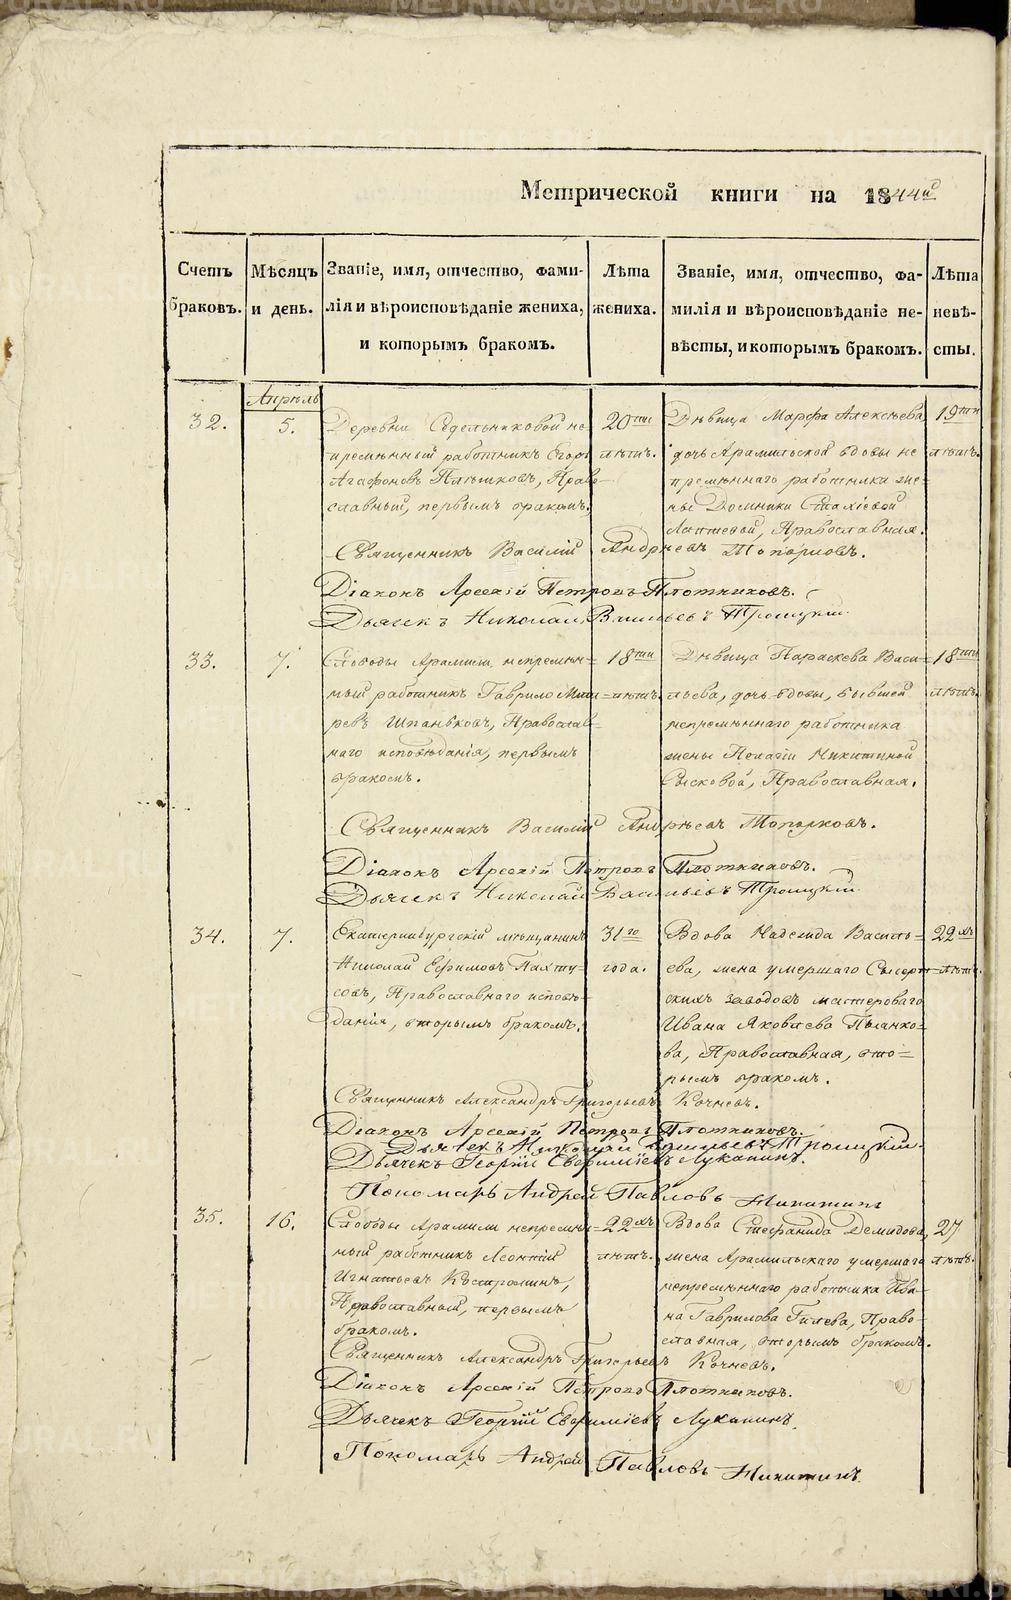 METRIKI.GASO-URAL.RU
Метрической книги на 1844й
Счетъ браковъ.
Мѣсяцъ и день.
Званіе, имя, отчество, фами-
лія и вѣроисповѣданіе жениха,
и которымъ бракомъ.
Лѣта
жениха.
Званіе, имя, отчество, фа-
милія и вѣроисповѣданіе не-
вѣсты, и которымъ бракомъ.
Лѣта
невѣ-
сты.
Апрѣль
32.
5.
Деревни Седельниковой не
премѣнный работникъ Егоръ
Агафоновъ Плѣшковъ, Право-
славный, первымъ бракомъ.
20ти
лѣтъ.
Дѣвица Марфа Алексѣева
дочь Арамильской вдовы не
премѣннаго работника же-
ны Домники
Лаптевой, Православная.
19ти
лѣтъ.
Священникъ Василій Андрѣевъ Топорковъ.
Діаконъ Арсеній Петровъ Плотниковъ.
Дьячекъ Николай Васильевъ Троицкій.
33.
7.
Слободы Арамили непремѣн=
ный работникъ Гаврило
ревъ Шпаньковъ, Православ-
наго исповѣданія, первымъ
бракомъ.
18ти
лѣтъ.
Дѣвица Параскева Васи=
льева, дочь вдовы, бывшей
непремѣннаго работника
жены Пелагіи Никитиной
Сысковой, Православная.
18ти
лѣтъ.
Священникъ Василій Андрѣевъ Топорковъ.
Діаконъ Арсеній Петровъ Плотниковъ.
Дьячекъ Николай Васильевъ Троицкій
34.
7.
Екатеринбургскій мѣщанинъ
Николай Ефимовъ Пахту-
совъ, Православнаго исповѣ-
данія, вторымъ бракомъ.
31го
года.
Вдова Надежда Василь=
ева, жена умершаго Сысерт=
скихъ заводовъ мастероваго
Ивана Яковлева Пьянко-
ва, Православная, вто=
рымъ бракомъ.
22хъ
лѣтъ.
Священникъ Александръ Григорьевъ Кочневъ.
Діаконъ Арсеній Петровъ Плотниковъ.
Дьячекъ Николай Васильевъ Троицкій.
Дьячекъ Георгій Евфиміевъ Луканинъ.
Пономарь Андрей Павловъ Никитинъ
35.
16.
Слободы Арамили непремѣн=
ный работникъ Леонтій
Игнатьевъ Костроминъ,
Православный, первымъ
бракомъ.
22хъ
лѣтъ.
Вдова Стефанида Демидова,
жена Арамильскаго умершаго
непремѣннаго работника Ива-
на Гаврилова Гилева, Право-
славная, вторымъ бракомъ.
27
лѣтъ.
Священникъ Александръ Григорьевъ Кочневъ.
Діаконъ Арсеній Петровъ Плотниковъ.
Дьячекъ Георгій Евфиміевъ Луканинъ.
Пономарь Андрей Павловъ Никитинъ.